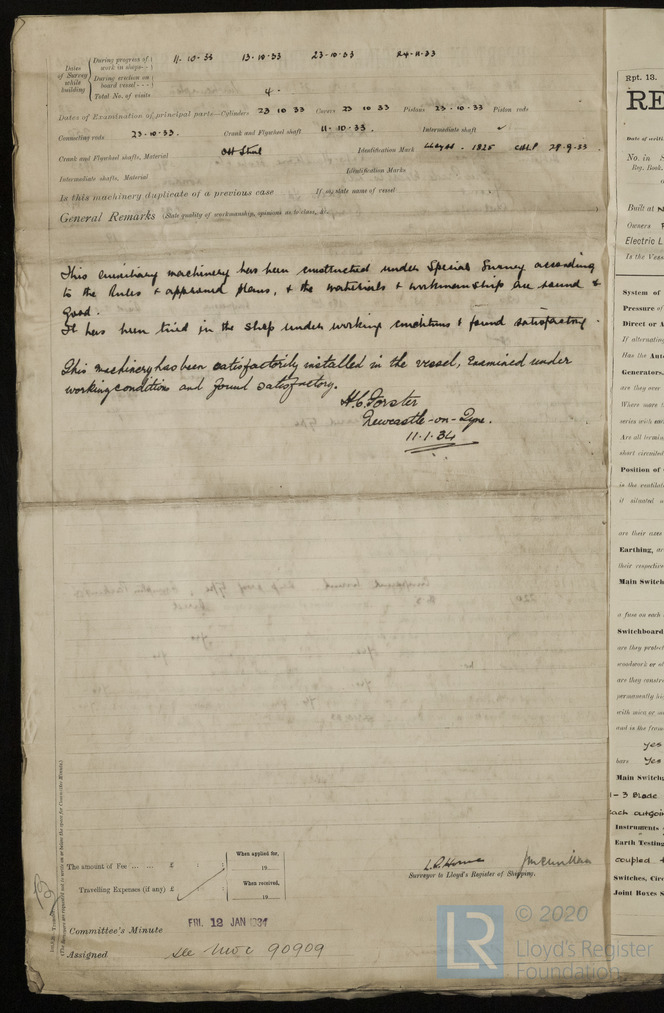 Dates of Survey while building
During progress of work in shops - - 11-10-33 13-10-33 23-10-33 24-11-33
During erection on board vessel - - -
Total No. of visits 4.
Dates of Examination of principal parts—Cylinders 23 10 33 Covers 23 10 33 Pistons 23-10-33 Piston rods
Connecting rods 23-10-33. Crank and Flywheel shaft 11-10-33. Intermediate shaft ✓
Crank and Flywheel shafts, Material Steel Identification Mark Lloyds - 1825 29-9-33
Intermediate shafts, Material Identification Marks
Is this machinery duplicate of a previous case If so, state name of vessel
General Remarks (State quality of workmanship, opinions as to class, &c.)
This auxiliary machinery has been constructed under Special Survey according
to the Rules & approved plans, & the materials & workmanship are sound &
good.
It has been tried in the shop under working conditions & found satisfactory.
This machinery has been satisfactorily installed in the vessel, examined under
working conditions and found satisfactory.
H.C. Forster
Newcastle-on-Tyne.
11.1.34
The amount of Fee ... ... £ : : When applied for,
19
Travelling Expenses (if any) £ : : When received,
19
Surveyor to Lloyd's Register of Shipping.
Committee's Minute FRI. 12 JAN 1934
Assigned see 90909
(The Surveyors are requested not to write on or below the space for Committee Minute.)
Rpt. 13.
RE
Date of writi
No. in S
Reg. Book.
Built at N
Owners
Electric L
Is the Vess
System of
Pressure of
Direct or A
If alternating
Has the Aut
Generators,
are they over
Where more
series with each
Are all termin
short circuited
Position of
is the ventilat
if situated
are their axes
Earthing, ar
their respective
Main Switch
a fuse on each
Switchboard
are they protect
woodwork or ot
are they constru
permanently hi
with mica or m
and is the fram
yes
bars Yes
Main Switch
1-3 Blade
each outgoi
Instruments
Earth Testing
coupled t
Switches, Circ
Joint Boxes
LR © 2020
Lloyd's Register
Foundation